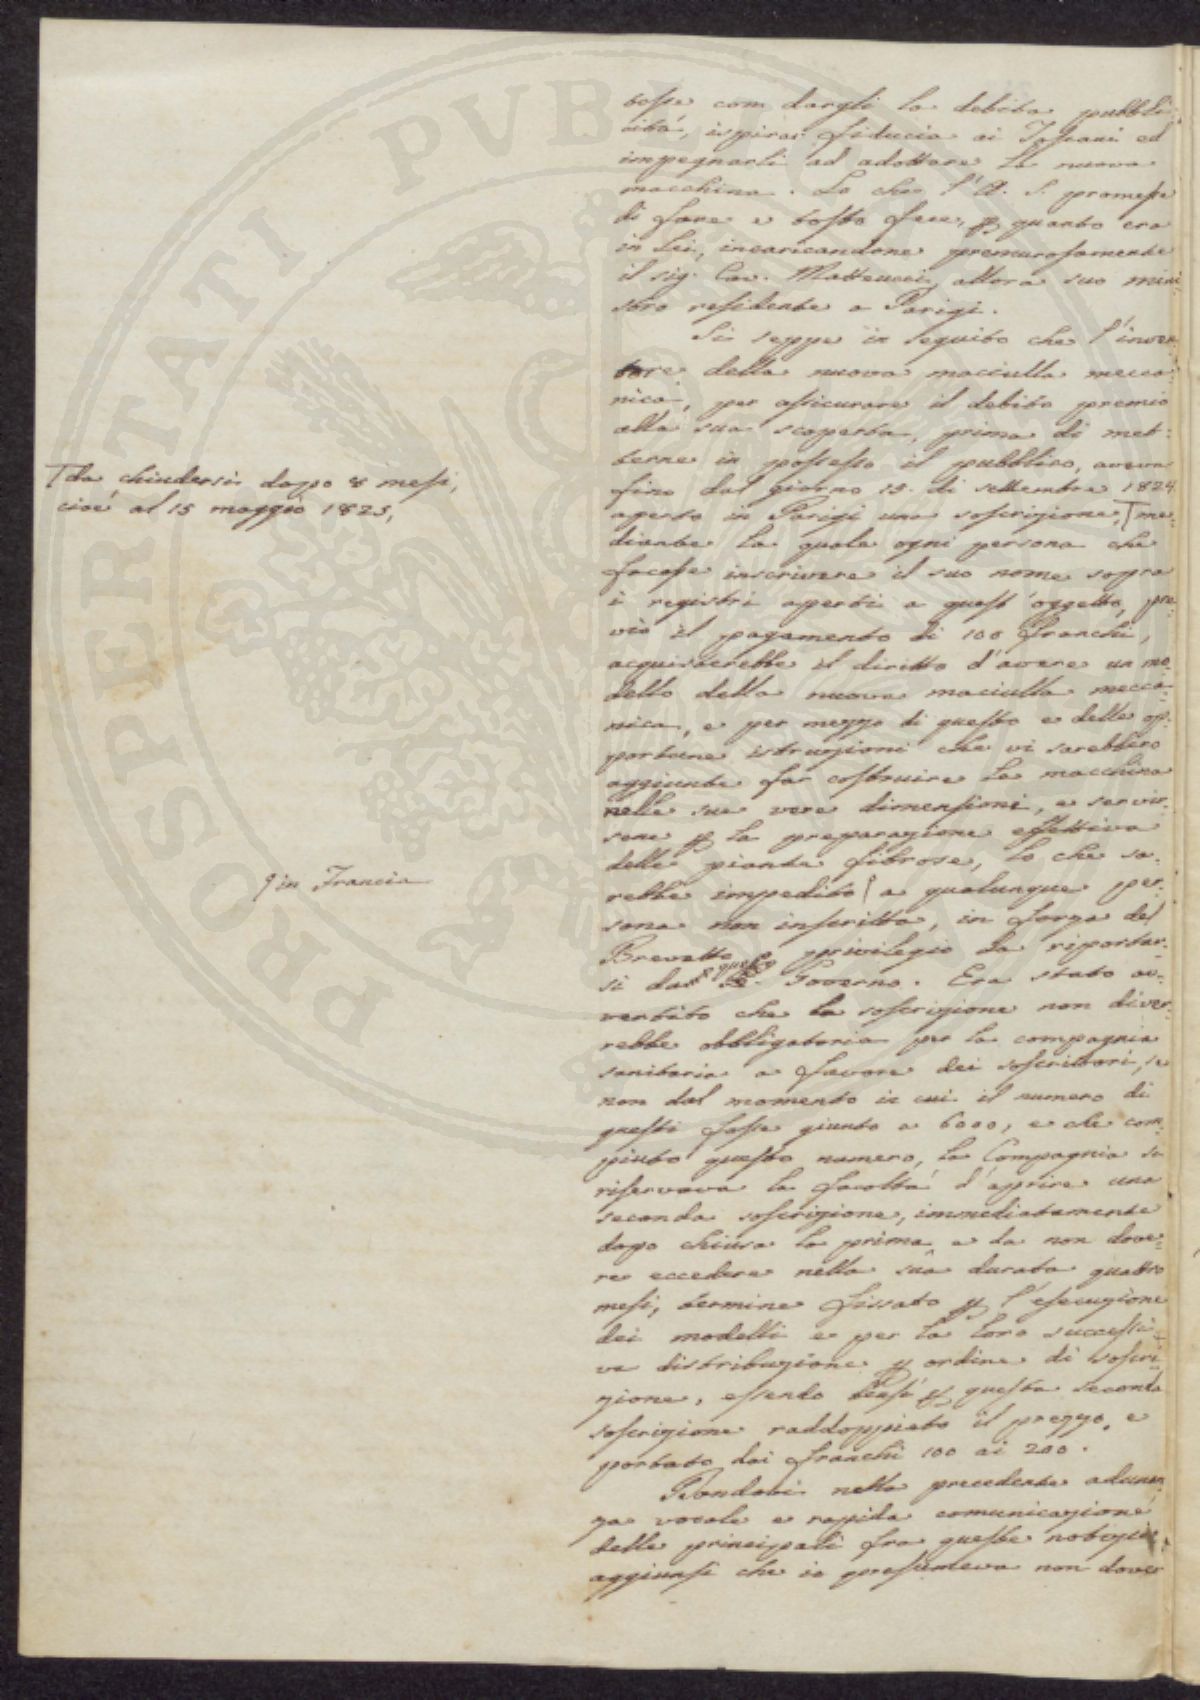 tesse com dargli la debita pubbli-
cità, ispirar fiducia ai Toscani ed
impegnarli ad adottare la nuova
macchina. Lo che l'A. S. promesse
di fare e tosto fece, p quanto era
in Lei, incaricandone premurosamente
il sig. Cav. Matteucci, allora suo mini-
stro residente a Parigi.
Si seppe in seguito che l'inven-
tore della nuova maciulla mecca-
nica, per assicurare il debito premio
alla sua scoperta, prima di met-
terne in possesso il pubblico, aveva
fino dal giorno 15. di settembre 1824
aperto in Parigi una soscrizione, T me-
diante la quale ogni persona che
facesse inscrivere il suo nome sopra
i registri aperti a quest'oggetto, pre-
vio il pagamento di 100 franchi,
acquisterebbe il diritto d'avere un mo-
dello della nuova maciulla mecca-
nica, e per mezzo di questo e delle op-
portune istruzioni che vi sarebbero
aggiunte far costruire la macchina
nelle sue vere dimensioni, e servir-
sene p la preparazione effettiva
delle piante fibrose, lo che sa-
rebbe impedito a qualunque per-
sona non inscritta, in forza del
Brevetto privilegio da riportar-
si da quel Governo. Era stato av-
vertito che la soscrizione non diver-
rebbe obbligatoria per la compagnia
sanitaria a favore dei soscrittori, se
non dal momento in cui il numero di
questi fosse giunto a 6000, e che com-
piuto questo numero, la Compagnia si
riservava la facoltà d'aprire una
seconda soscrizione, immediatamente
dopo chiusa la prima e da non dove-
re eccedere nella sua durata quattro
mesi, termine fissato p l'esecuzione
dei modelli e per la loro successi-
va distribuzione p ordine di soscri-
zione, essendo però p questa seconda
soscrizione raddoppiato il prezzo, e
portato dai franchi 100 ai 200.
Rendovi nella precedente adunan-
za vocale e rapida comunicazione
delle principali fra queste notizie
aggiunsi che io presumeva non dover
T da chiudersi dopo 8 mesi,
cioè al 15 maggio 1825,
in Francia